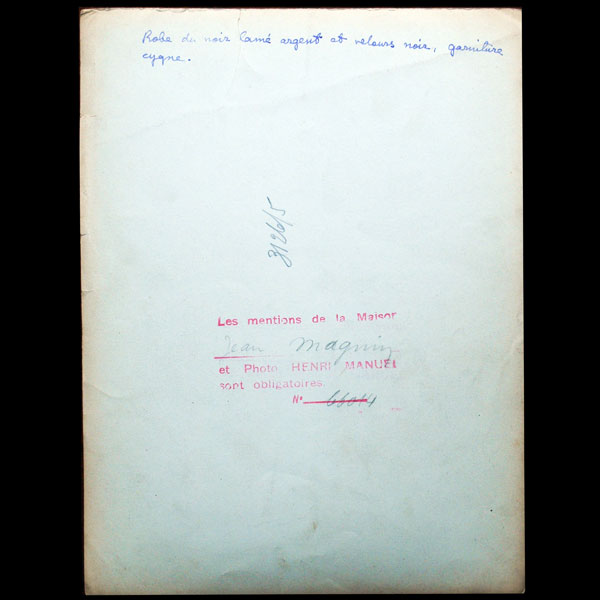 Robe du noir lamé argent et velours noir, garniture
cygne.
3126/5
Les mentions de la Maison
Jean Magnin
et Photo HENRI MANUEL
sont obligatoires.
N°